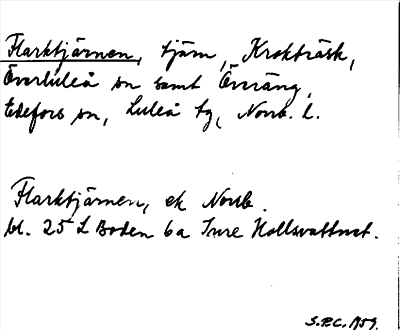 Flarktjärnen, tjärn, Krokträsk,
Överluleå sn samt Överäng,
Edefors sn, Luleå tg, Norrb. l.
Flarktjärnen, ek Norrb.
bl. 25 L Boden 6a Inre
S.P.C. 1959.